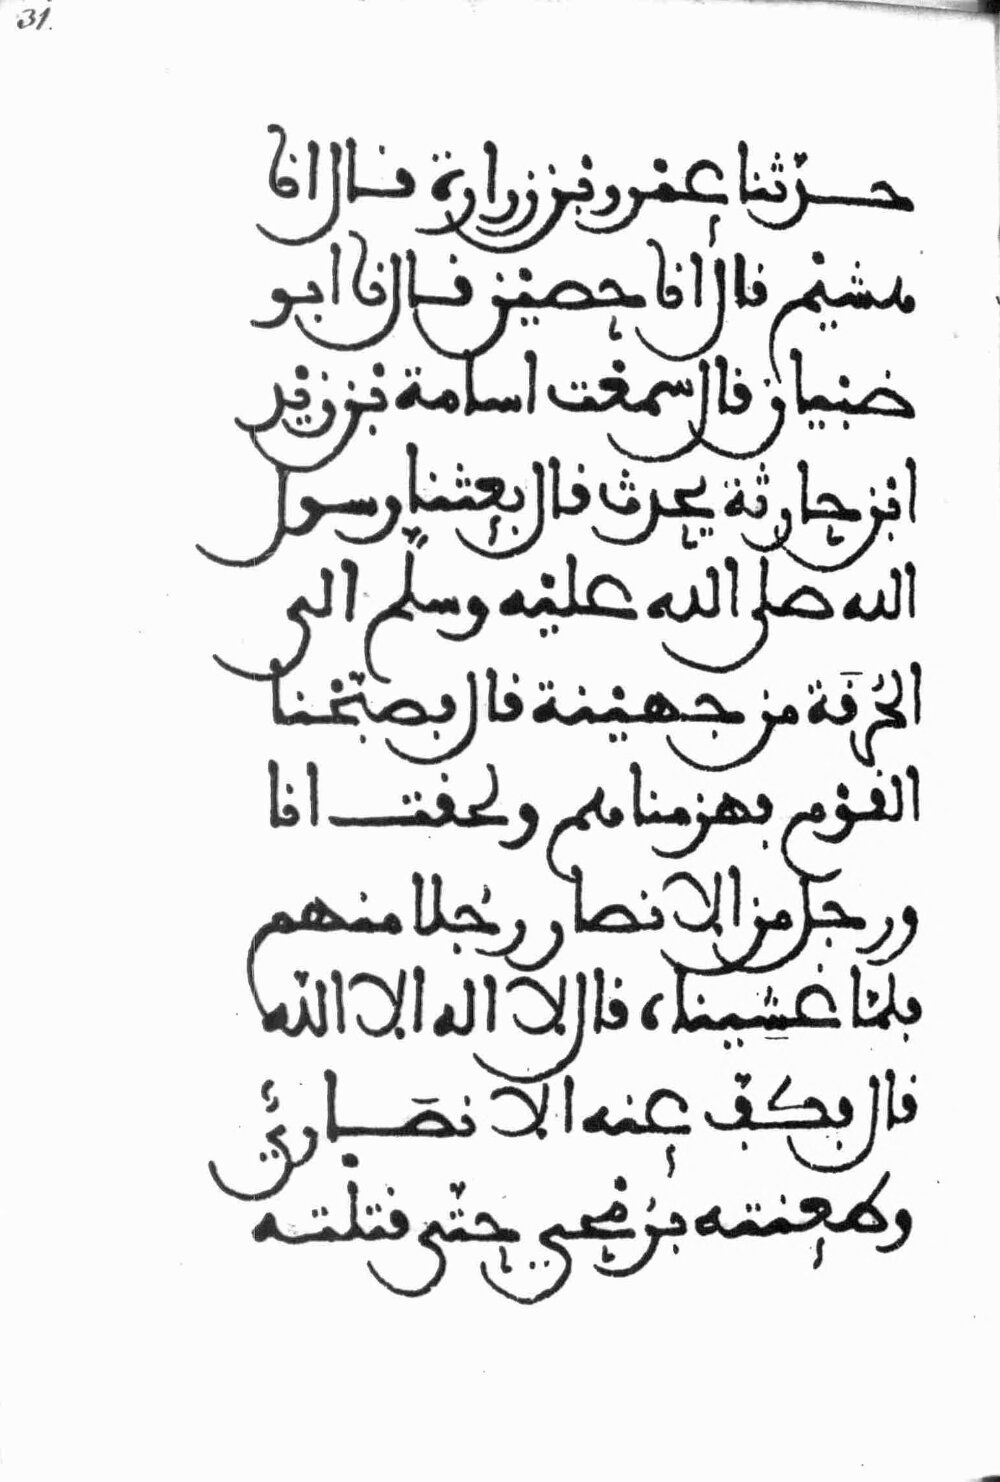 31.
حدثنا عمرو بن زرارة قال انا
هشيم قال انا حصين قال نا ابو
ضبيان قال سمعت اسامة بن زيد
ابن حارثة يحدث قال بعثنا رسول
الله صلى الله عليه وسلم الى
الحُرَقة من جهينة قال فصبّحنا
القوم فهزمناهم ولحقت انا
ورجل من الانصار رجُلا منهم
فلمّا غشينا، قال لا اله الا الله
قال فكفّ عنه الانصاريّ
وطعنته برُمحي حتّى قتلته